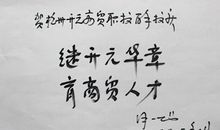 贺杭州开元商贸职校百年校庆
继开元华章
育商贸人才